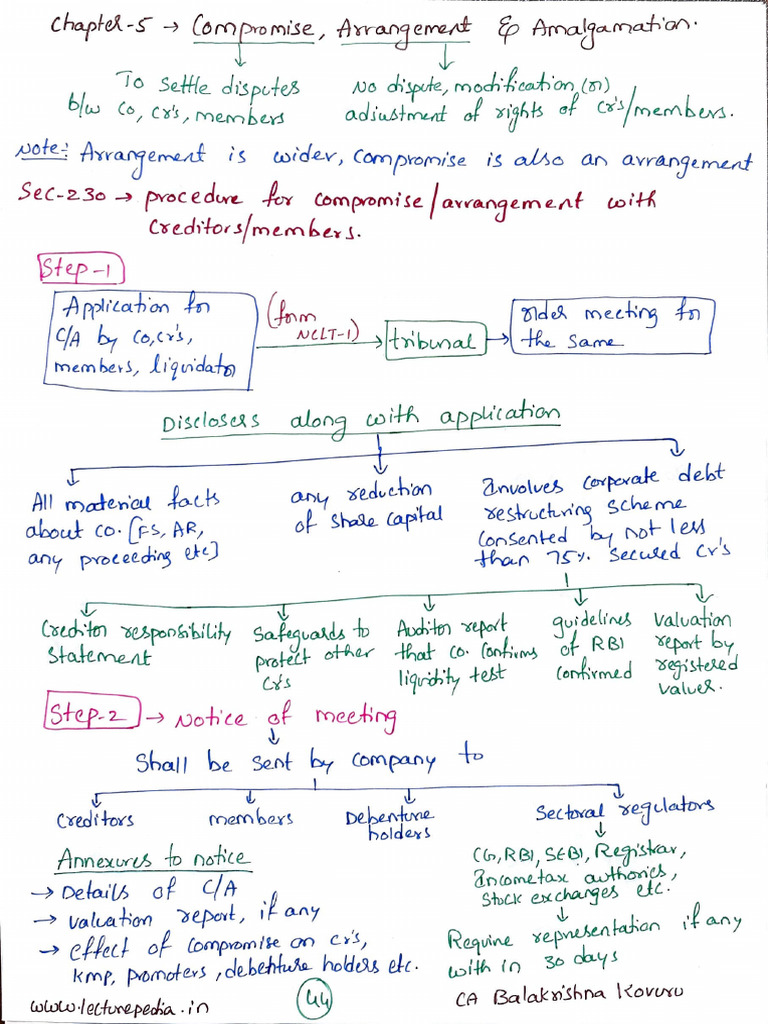 Chapter-5 → Compromise, Arrangement & Amalgamation.
To settle disputes
b/w co, cr's, members
No dispute, modification (or)
adjustment of rights of cr's/members.
Note:- Arrangement is wider, compromise is also an arrangement
Sec-230 → procedure for compromise/arrangement with
creditors/members.
Step-1
Application for
C/A by co, cr's,
members, liquidator
(form
NCLT-1)
tribunal
order meeting for
the same
Disclosers along with application
All material facts
about co. [FS, AR,
any proceeding etc]
any reduction
of share capital
Involves corporate debt
restructuring scheme
consented by not less
than 75% secured cr's
Creditor responsibility
statement
Safeguards to
protect other
cr's
Auditor report
that co. confirms
liquidity test
guidelines
of RBI
confirmed
valuation
report by
registered
valuer.
Step-2 → Notice of meeting
Shall be sent by company to
creditors
members
Debenture
holders
Sectoral regulators
CG, RBI, SEBI, Registrar,
Incometax authories,
stock exchanges etc.
Require representation if any
with in 30 days
Annexures to notice
→ Details of C/A
→ valuation report, if any
→ effect of compromise on cr's,
kmp, promoters, debenture holders etc.
www.lecturepedia.in
44
CA Balakrishna Kovuru